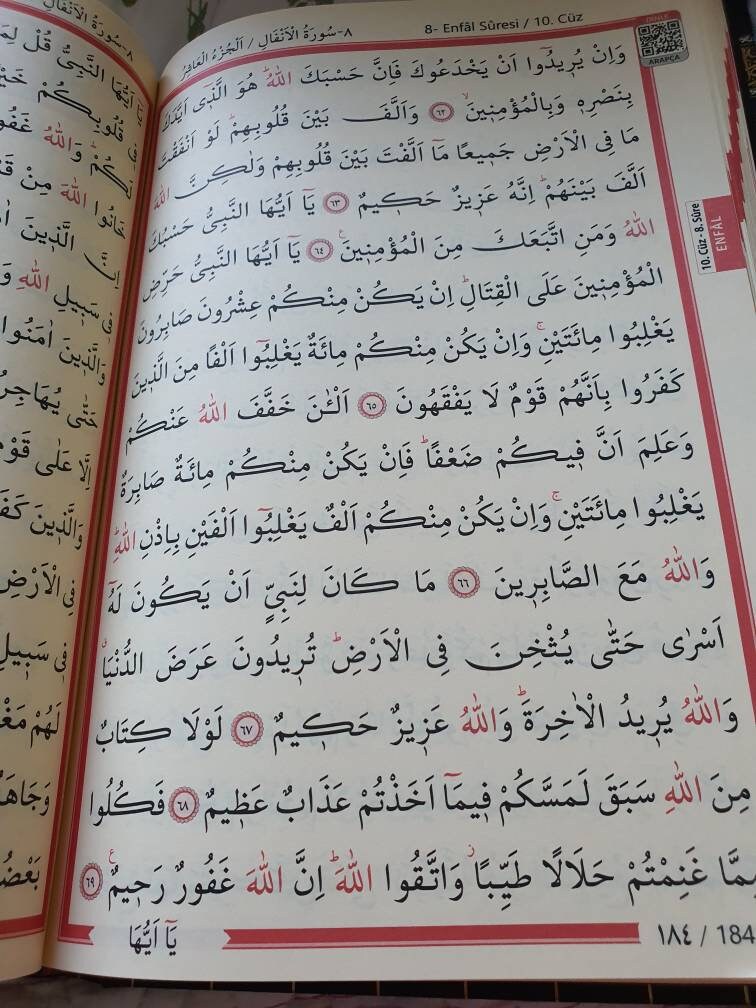 ٨-سُورَةُ الْاَنْفَالِ / اَلْجُزْءُ الْعَاشِرُ
8- Enfâl Sûresi / 10. Cüz
DİNLE
ARAPÇA
وَاِنْ يُرِيدُٓوا اَنْ يَخْدَعُوكَ فَاِنَّ حَسْبَكَ اللّٰهُۜ هُوَ الَّذ۪ٓى اَيَّدَكَ
بِنَصْرِه۪ وَبِالْمُؤْمِن۪ينَۙ ﴿٦٢﴾ وَاَلَّفَ بَيْنَ قُلُوبِهِمْۜ لَوْ اَنْفَقْتَ
مَا فِى الْاَرْضِ جَم۪يعًا مَٓا اَلَّفْتَ بَيْنَ قُلُوبِهِمْ وَلٰكِنَّ اللّٰهَ
اَلَّفَ بَيْنَهُمْۜ اِنَّهُ عَز۪يزٌ حَك۪يمٌ ﴿٦٣﴾ يَٓا اَيُّهَا النَّبِىُّ حَسْبُكَ
اللّٰهُ وَمَنِ اتَّبَعَكَ مِنَ الْمُؤْمِن۪ينَ۟ ﴿٦٤﴾ يَٓا اَيُّهَا النَّبِىُّ حَرِّضِ
الْمُؤْمِن۪ينَ عَلَى الْقِتَالِۜ اِنْ يَكُنْ مِنْكُمْ عِشْرُونَ صَابِرُونَ
يَغْلِبُوا مِائَتَيْنِۚ وَاِنْ يَكُنْ مِنْكُمْ مِائَةٌ يَغْلِبُٓوا اَلْفًا مِنَ الَّذ۪ينَ
كَفَرُوا بِاَنَّهُمْ قَوْمٌ لَا يَفْقَهُونَ ﴿٦٥﴾ اَلْـٰٔنَ خَفَّفَ اللّٰهُ عَنْكُمْ
وَعَلِمَ اَنَّ ف۪يكُمْ ضَعْفًاۜ فَاِنْ يَكُنْ مِنْكُمْ مِائَةٌ صَابِرَةٌ
يَغْلِبُوا مِائَتَيْنِۚ وَاِنْ يَكُنْ مِنْكُمْ اَلْفٌ يَغْلِبُٓوا اَلْفَيْنِ بِاِذْنِ اللّٰهِۜ
وَاللّٰهُ مَعَ الصَّابِر۪ينَ ﴿٦٦﴾ مَا كَانَ لِنَبِىٍّ اَنْ يَكُونَ لَهُٓ
اَسْرٰى حَتّٰى يُثْخِنَ فِى الْاَرْضِۜ تُر۪يدُونَ عَرَضَ الدُّنْيَاۗ
وَاللّٰهُ يُر۪يدُ الْاٰخِرَةَۜ وَاللّٰهُ عَز۪يزٌ حَك۪يمٌ ﴿٦٧﴾ لَوْلَا كِتَابٌ
مِنَ اللّٰهِ سَبَقَ لَمَسَّكُمْ ف۪يمَٓا اَخَذْتُمْ عَذَابٌ عَظ۪يمٌ ﴿٦٨﴾ فَكُلُوا
مِمَّا غَنِمْتُمْ حَلَالًا طَيِّبًاۘ وَاتَّقُوا اللّٰهَۜ اِنَّ اللّٰهَ غَفُورٌ رَح۪يمٌ۟ ﴿٦٩﴾
يَٓا اَيُّهَا
١٨٤ / 184
10. Cüz - 8. Sûre
ENFÂL
٨-سُورَةُ الْاَنْفَالِ
اَيُّهَا النَّبِىُّ قُلْ
قُلُوبِكُمْ
وَاللّٰهُ
خَانُوا اللّٰهَ مِنْ
الَّذ۪ينَ
ف۪ى سَب۪يلِ اللّٰهِ
وَالَّذ۪ينَ اٰمَنُوا
حَتّٰى
عَلٰى
وَالَّذ۪ينَ
فِى الْاَرْضِ
ف۪ى سَب۪يلِ
لَهُمْ
بَعْضُ